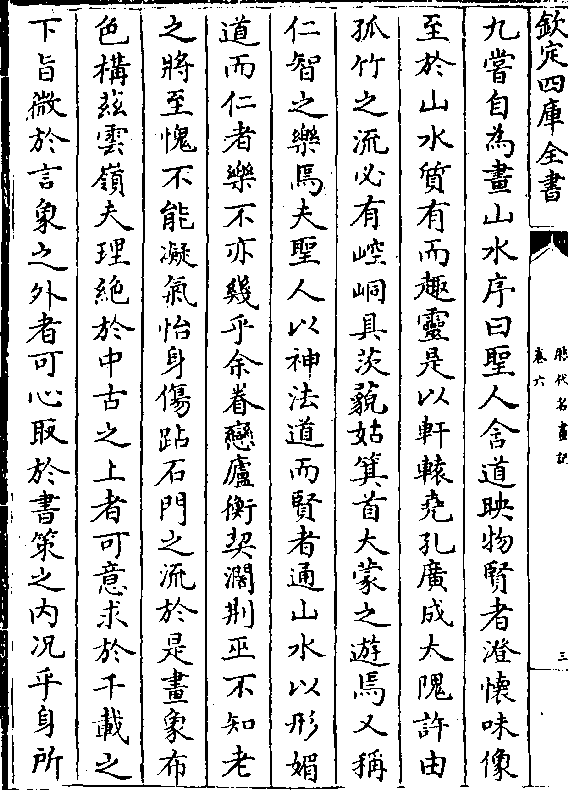 欽定四庫全書
歷代名畫記
卷六
三
九嘗自為畫山水序曰聖人含道映物賢者澄懷味像
至於山水質有而趣靈是以軒轅堯孔廣成大隗許由
孤竹之流必有崆峒具茨藐姑箕首大蒙之遊焉又稱
仁智之樂焉夫聖人以神法道而賢者通山水以形媚
道而仁者樂不亦幾乎余眷戀廬衡契濶荆巫不知老
之將至愧不能凝氣怡身傷跕石門之流於是畫象布
色構玆雲嶺夫理絶於中古之上者可意求於千載之
下旨微於言象之外者可心取於書策之内况乎身所